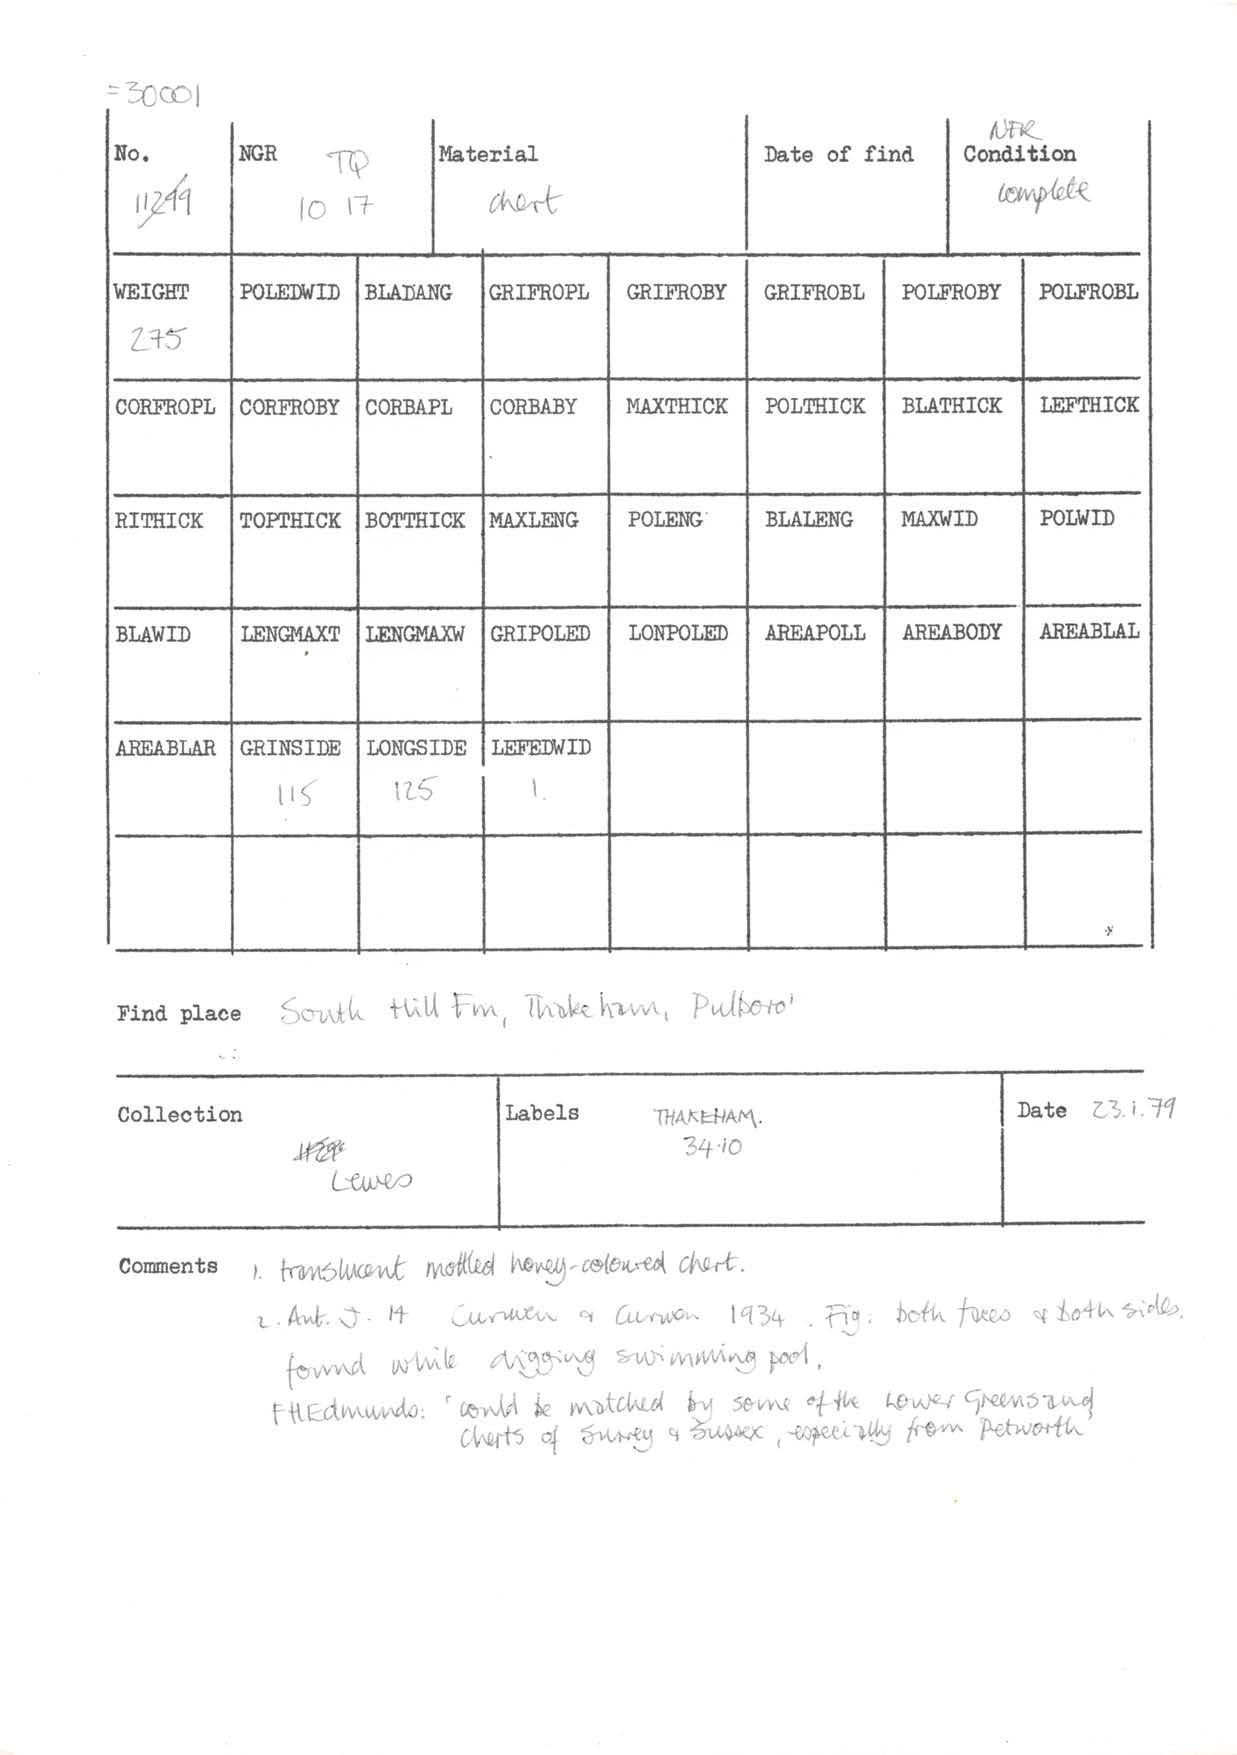 =30001
No. NGR TQ Material Date of find NFR Condition
11249 10 17 chert complete
WEIGHT POLEDWID BLADANG GRIFROPL GRIFROBY GRIFROBL POLFROBY POLFROBL
275
CORFROPL CORFROBY CORBAPL CORBABY MAXTHICK POLTHICK BLATHICK LEFTHICK
RITHICK TOPTHICK BOTTHICK MAXLENG POLENG BLALENG MAXWID POLWID
BLAWID LENGMAXT LENGMAXW GRIPOLED LONPOLED AREAPOLL AREABODY AREABLAL
AREABLAR GRINSIDE LONGSIDE LEFEDWID
115 125 1.
Find place South Hill Fm, Thakeham, Pulboro'
Collection Labels THAKEHAM. Date 23.i.79
34.10
Lewes
Comments 1. translucent mottled honey-coloured chert.
2. Ant. J. 14 Curwen & Curwen 1934. Fig: both faces & both sides.
found while digging swimming pool.
FHEdmunds: 'could be matched by some of the Lower Greensand
cherts of Surrey & Sussex, especially from Petworth